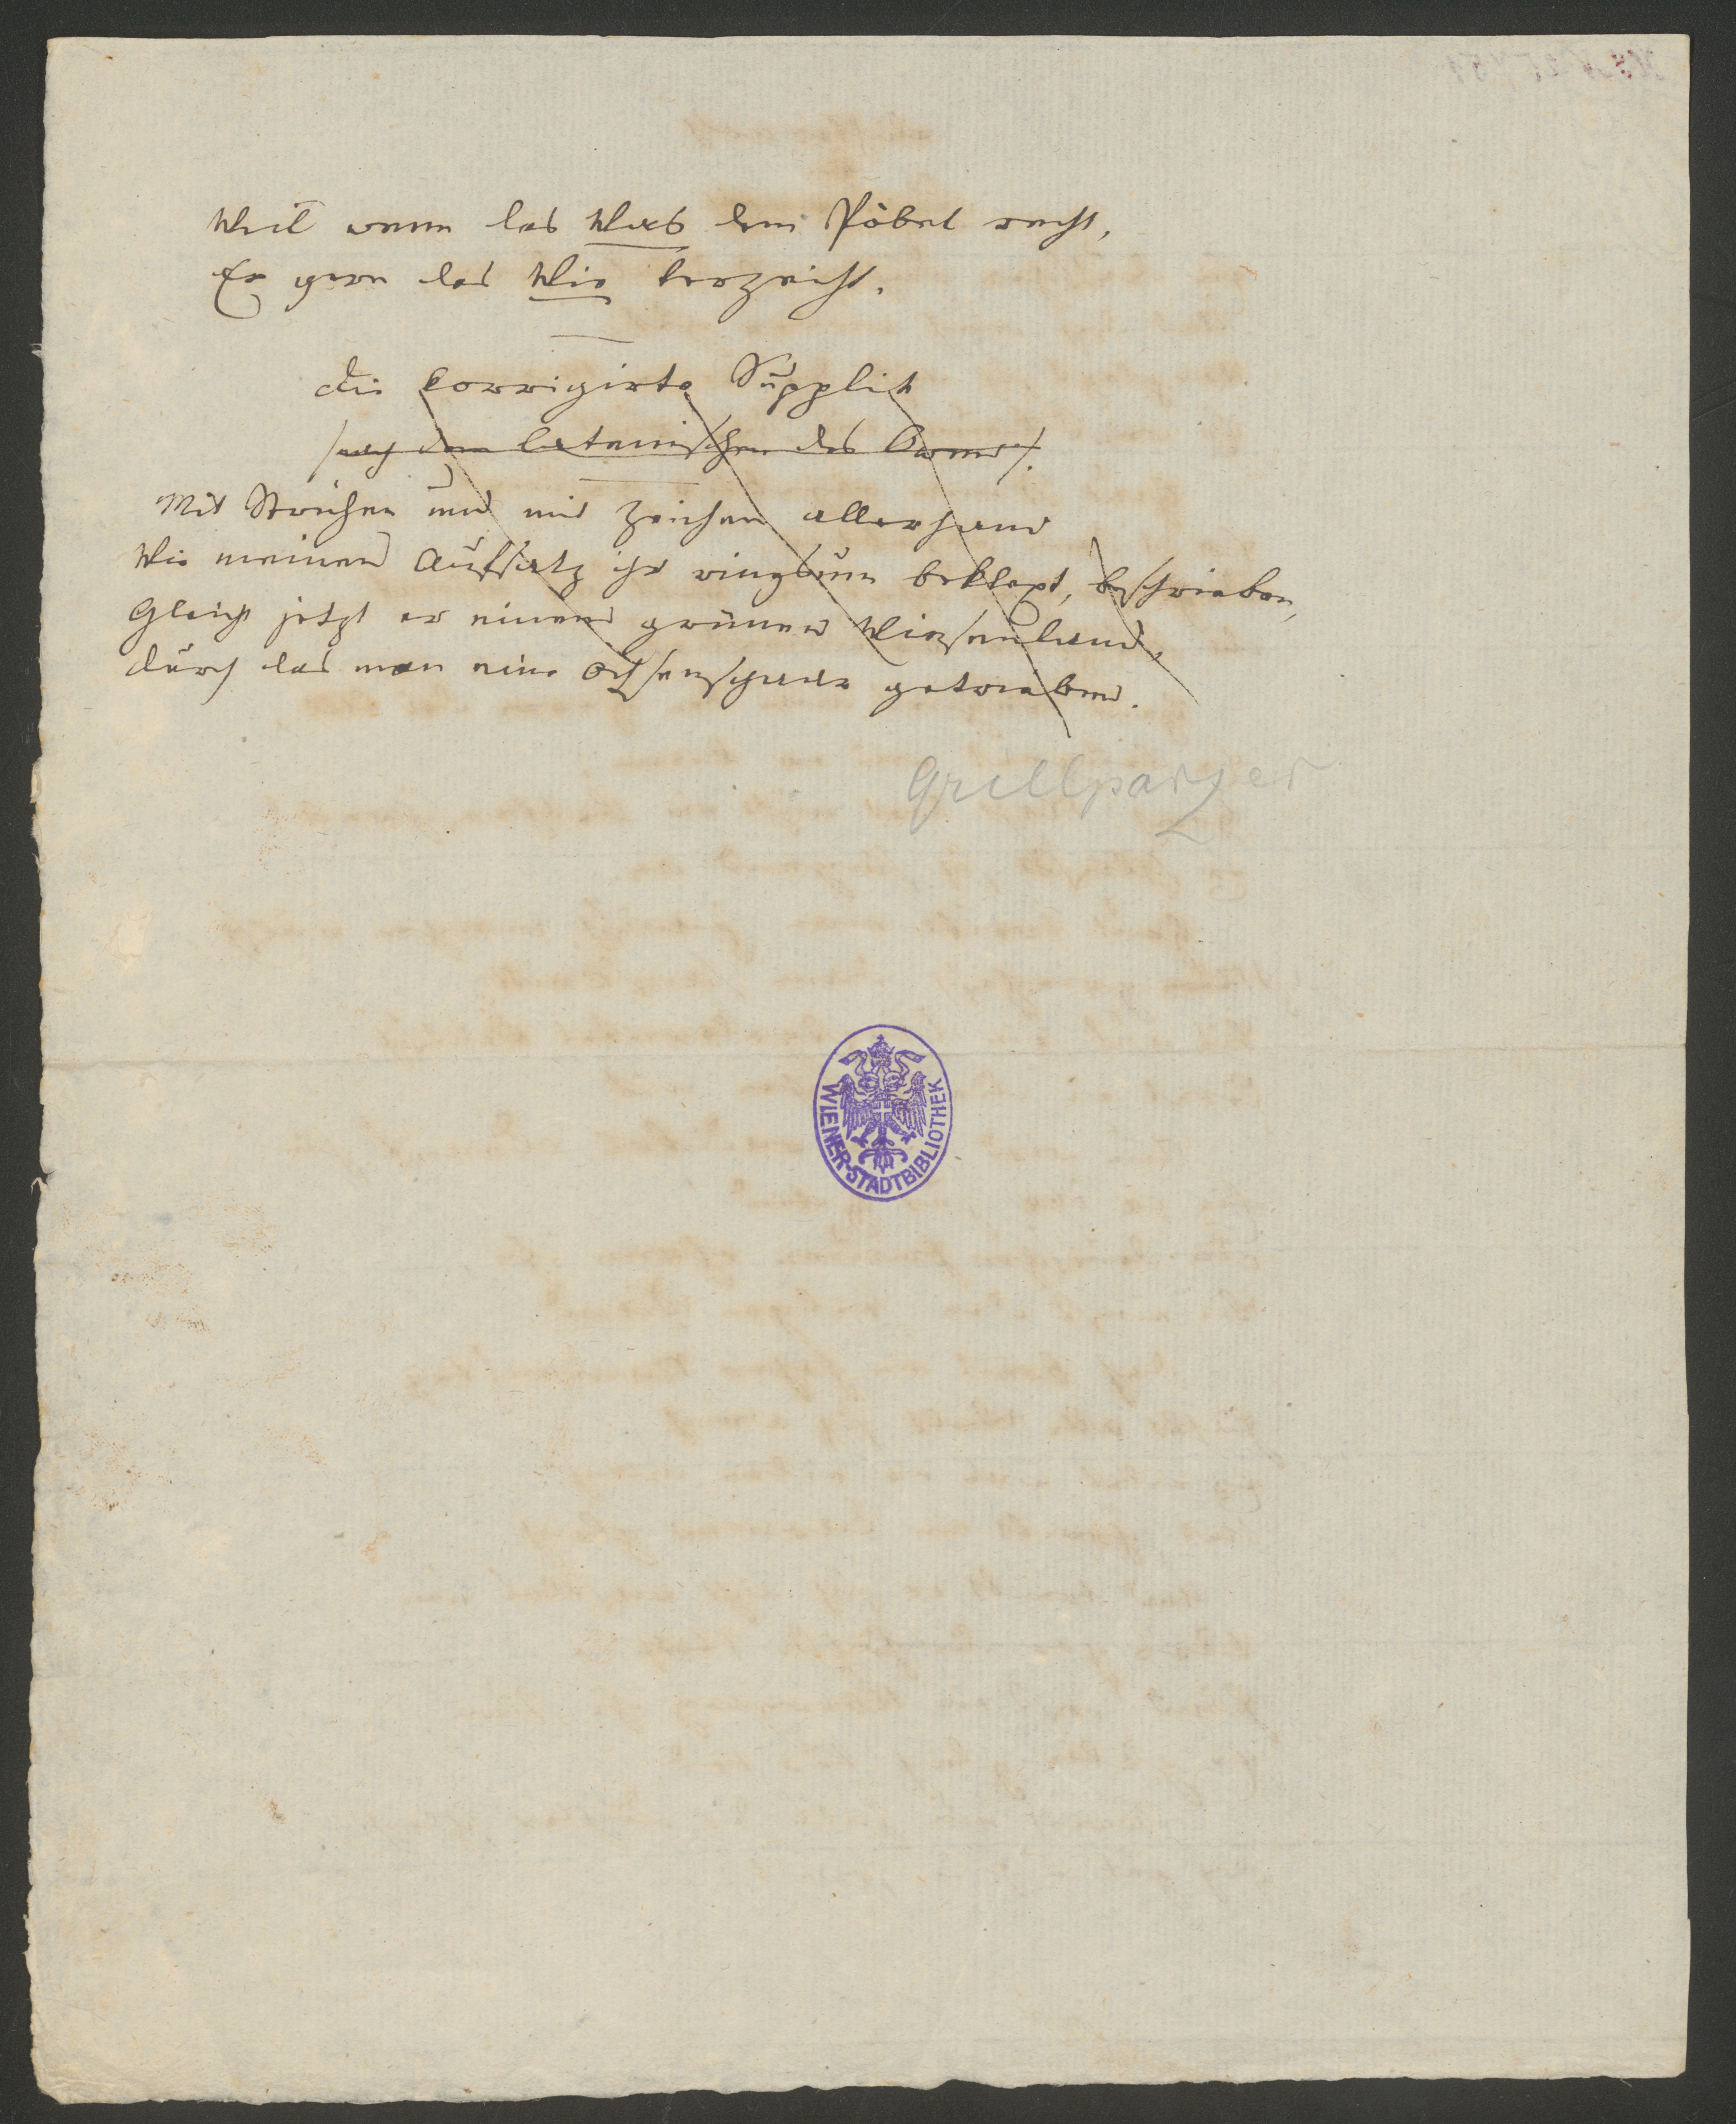 Weil wenn das Was dem Pöbel recht,
Er gern das Wie verzeiht.
Die korrigirte Supplik
/nach dem Lateinischen des Owen/.
Mit Strichen und mit Zeichen allerhand
Wie meinen Aufsatz ihr ringsum beklext, beschrieben,
Gleicht jetzt er einem grünen Wiesenland,
Durch das man eine Ochsenschaar getrieben.
Grillparzer
WIENER-STADTBIBLIOTHEK